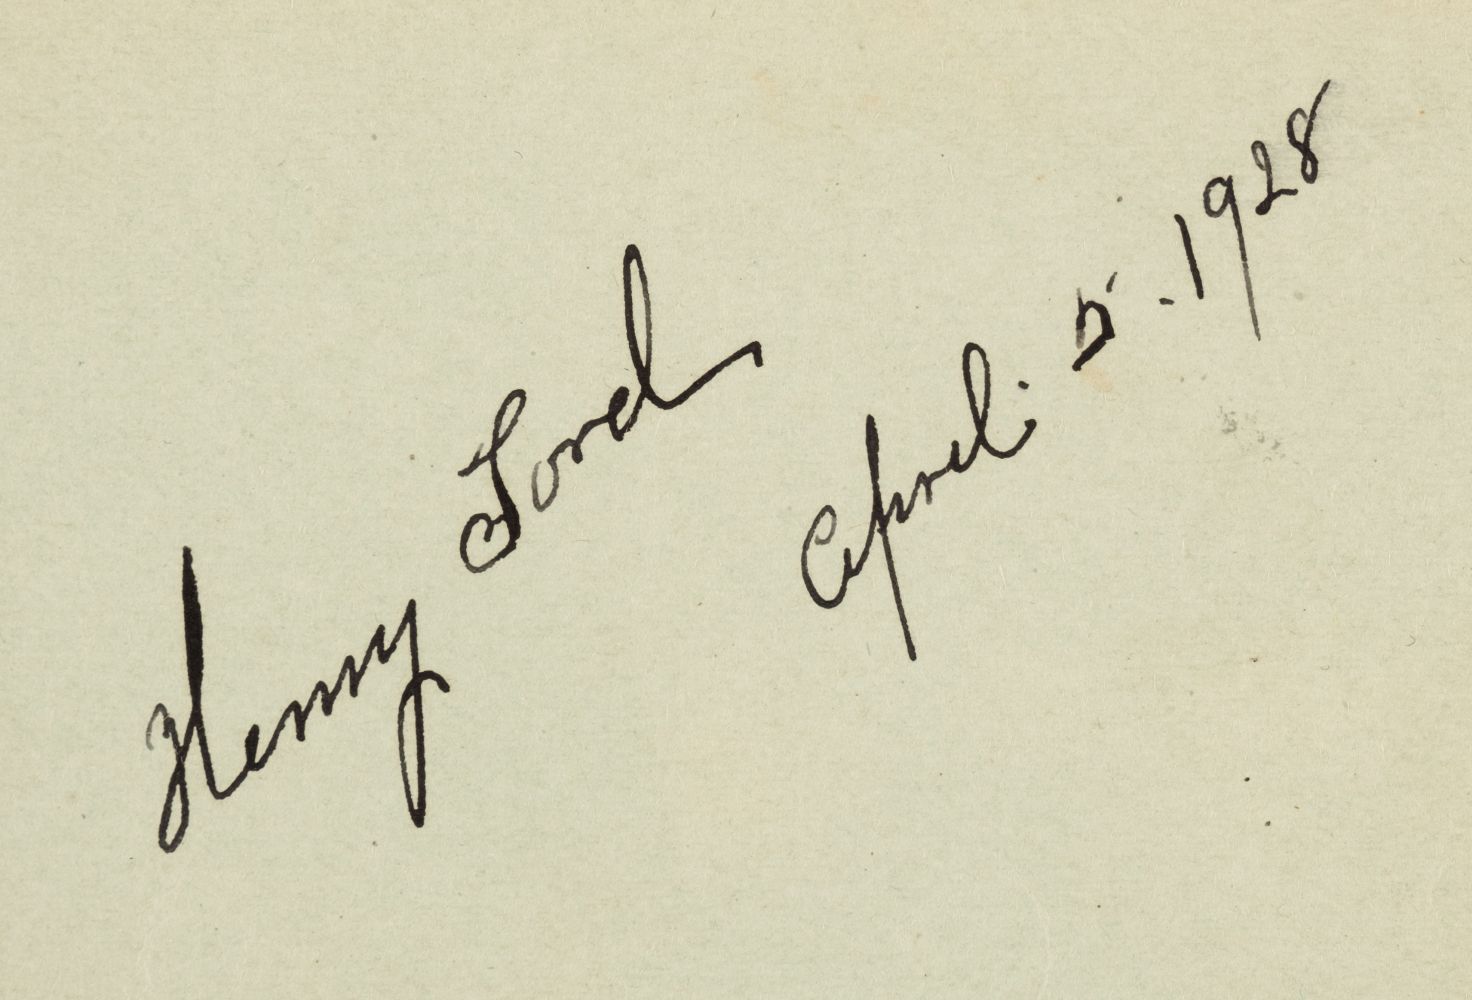 Henry Ford
April. 5. 1928